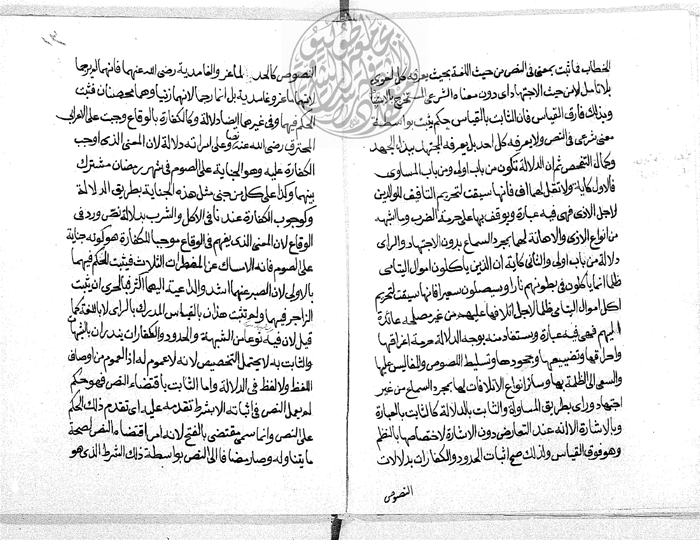 الخطاب فما ثبت بمعنى فى النص من حيث اللغة بحيث يعرفه كل لغوى
بلا تأمل لا من حيث الاجتهاد اى دون معناه الشرعى المستخرج بالاستنباط
وبذلك فارق القياس فان الثابت بالقياس حكم يثبت بواسطة
معنى شرعى فى النص ولا يعرفه كل احد بل يعرفه المجتهد ببذل الجهد
وكمال التفحص ثم ان الدلالة تكون من باب اولى ومن باب المساوى
فالاول كاية ولا تقل لهما اف فانها سيقت لتحريم التافيف للوالدين
لاجل الاذى فهى فيه عبارة ويوقف بها على حرمة الضرب وما اشبه
من انواع الاذى والاهانة لهما بمجرد السماع بدون الاجتهاد والراى
دلالة من باب اولى والثانى كاية ان الذين ياكلون اموال اليتامى
ظلما انما ياكلون فى بطونهم نارا وسيصلون سعيرا فانها سيقت لتحريم
اكل اموال اليتامى ظلما لاجل اتلافها عليهم من غير مصلحة عائدة
اليهم فهى فيه عبارة ويستفاد منه بوجه الدلالة حرمة اغراقها
واحراقها وتضييعها وجحودها وتسليط اللصوص والمفاليس عليها
والسعى الى الظلمة بها وسائر انواع الاتلافات لها بمجرد السماع من غير
اجتهاد وراى بطريق المساواة والثابت بالدلالة كالثابت بالعبارة
وبالاشارة الا انه عند التعارض دون الاشارة لاختصاصها بالنظم
وهو فوق القياس ولذلك صح اثبات الحدود والكفارات بدلالات
النصوص
١٣
النصوص كالحد لماعز والغامدية رضى الله عنهما فانهما لم يرجما
لانهما ماعز وغامدية بل انما رجما لانهما زنيا وهما محصنان فثبت
الحكم فيهما وفى غيرهما ايضا دلالة وكالكفارة بالوقاع وجبت على الاعرابى
المعترف رضى الله عنه وعلى امراته دلالة لان المعنى الذى اوجب
الكفارة عليه وهو الجناية على الصوم فى شهر رمضان مشترك
بينهما وكذا على كل من جنى مثل هذه الجناية بطريق الدلالة
وكوجوب الكفارة عندنا فى الاكل والشرب بدلالة نص ورد فى
الوقاع لان المعنى الذى يفهم فى الوقاع موجبا للكفارة هو كونه جناية
على الصوم فانه الامساك عن المفطرات الثلاث فيثبت الحكم فيهما
بالاولى لان الصبر عنهما اشد والداعية اليهما اكثر فبالحرى ان يثبت
الزاجر فيهما ولم تثبت هذان بالقياس المدرك بالراى لا باللغة كما
قيل لان فيه نوعا من الشبهة والحدود والكفارات يندران بالشبهات
والثابت به لا يحتمل التخصيص لانه لا عموم له اذ العموم من اوصاف
اللفظ ولا لفظ فى الدلالة واما الثابت باقتضاء النص فهو حكم
لم يعمل النص فى اثباته الا بشرط تقدمه عليه اى تقدم ذلك الحكم
على النص وانما سمى مقتضى بالفتح لانه امر اقتضاه النص لصحة
ما يتناوله وصار مضافا الى النص بواسطة ذلك الشرط الذى هو